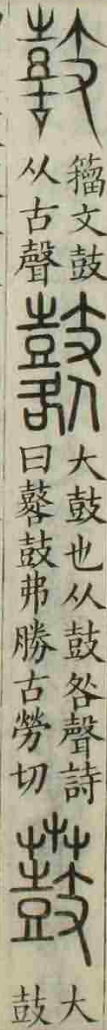 𪔐
籀文鼓
从古聲
鼛
大鼓也从鼓咎聲詩
曰鼛鼓弗勝古勞切
鼖
大
鼓